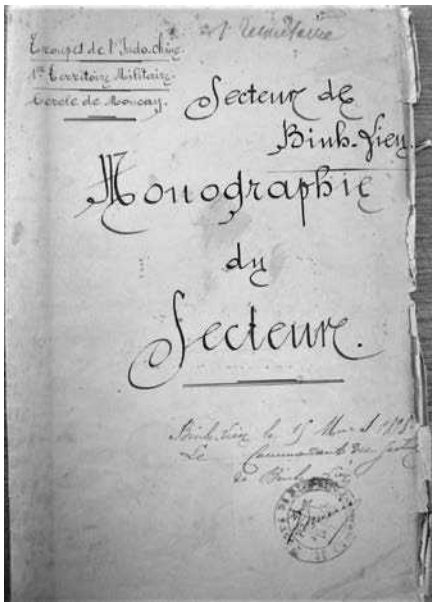 Troupes de l'Indo-chine
1er Territoire Militaire.
Cercle de Moncay.
Secteur de
Binh-Lieu.
Monographie
du
Secteur.
Binh-Lieu le 15
Le Commandant du Secteur
de Binh-Lieu